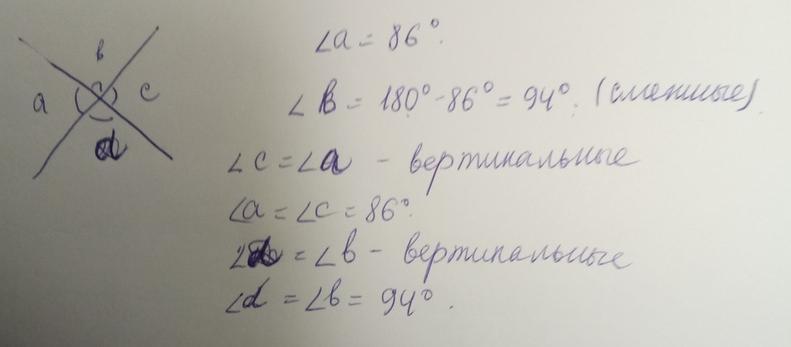 b
a
c
d
∠a = 86°.
∠B = 180° - 86° = 94°. (смежные)
∠c = ∠a - вертикальные
∠a = ∠c = 86°.
∠d = ∠b - вертикальные
∠d = ∠b = 94°.